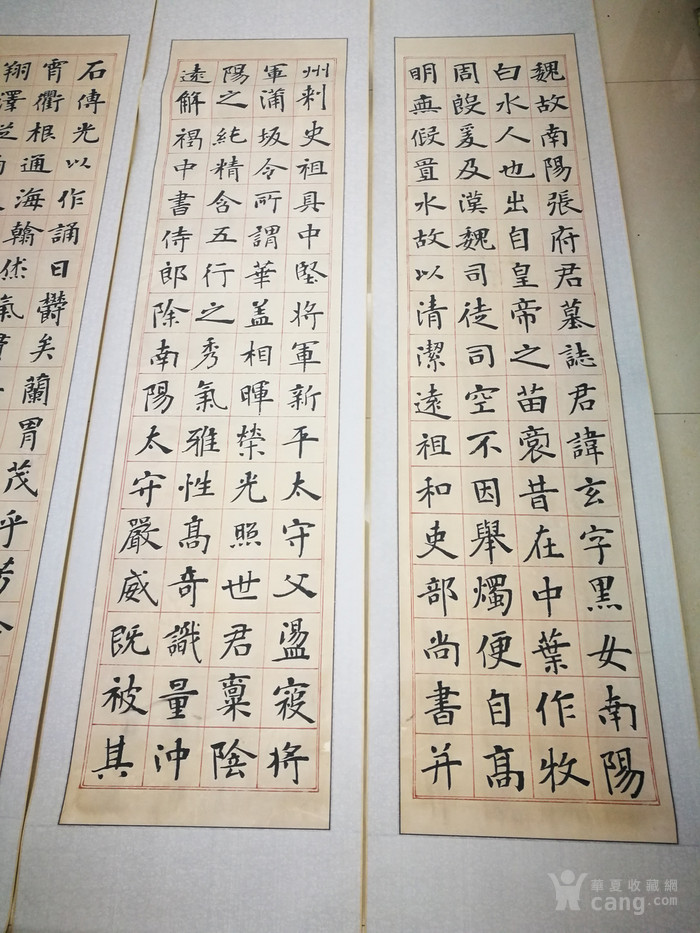 魏故南陽張府君墓誌君諱玄字黑女南陽
白水人也出自皇帝之苗裔昔在中葉作牧
周殷爰及漢魏司徒司空不因舉燭便自高
明無假置水故以清潔遠祖和吏部尚書并
州刾史祖具中堅將軍新平太守父盪寇將
軍蒲坂令所謂華蓋相暉榮光照世君稟陰
陽之純精含五行之秀氣雅性高奇識量沖
遠解褐中書侍郎除南陽太守嚴威既被其
石傳光以作誦曰欝矣蘭胃茂乎芳
霄衢根通海翰然氣
翔澤
華夏收藏網
cang.com